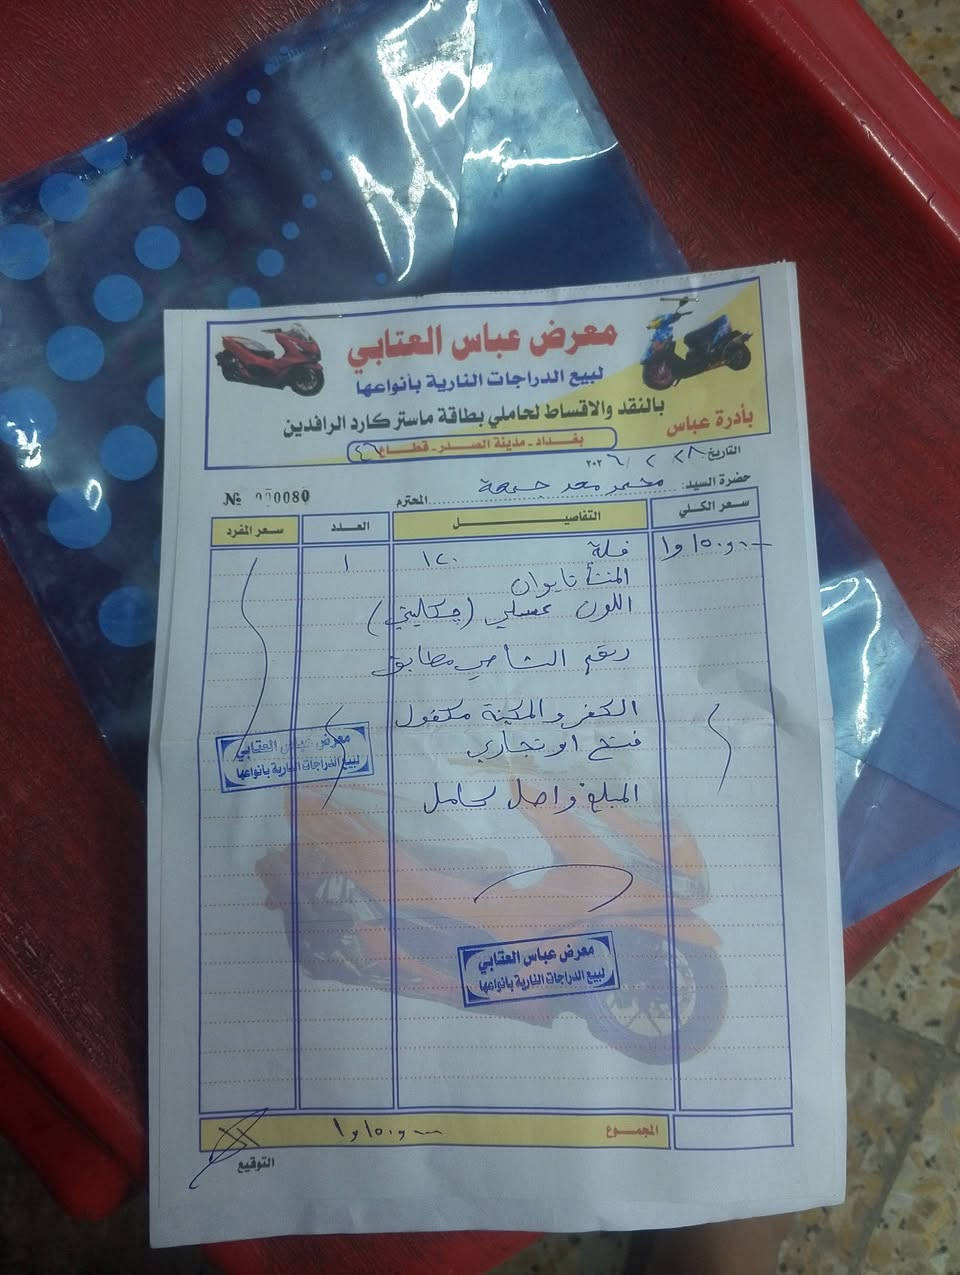 معرض عباس العتابي
لبيع الدراجات النارية بأنواعها
بالنقد والاقساط لحاملي بطاقة ماستر كارد الرافدين
بأدرة عباس
بغداد - مدينة الصدر - قطاع ٤٦
التاريخ ٢٨ / ٢ / ٢٠٢٦
حضرة السيد: محمد سعد جمعة المحترم
№ 000080
سعر الكلي التفاصيل العدد سعر المفرد
١٫١٥٠٫٠٠٠ فلة ١٢٠ ١
المنشأ تايوان
اللون عسلي (جكليتي)
رقم الشاصي مطابق
الكفر والمكينة مكفول
فتح او تجاري
المبلغ واصل كامل
معرض عباس العتابي
لبيع الدراجات النارية بأنواعها
معرض عباس العتابي
لبيع الدراجات النارية بأنواعها
المجموع ١٫١٥٠٫٠٠٠
التوقيع